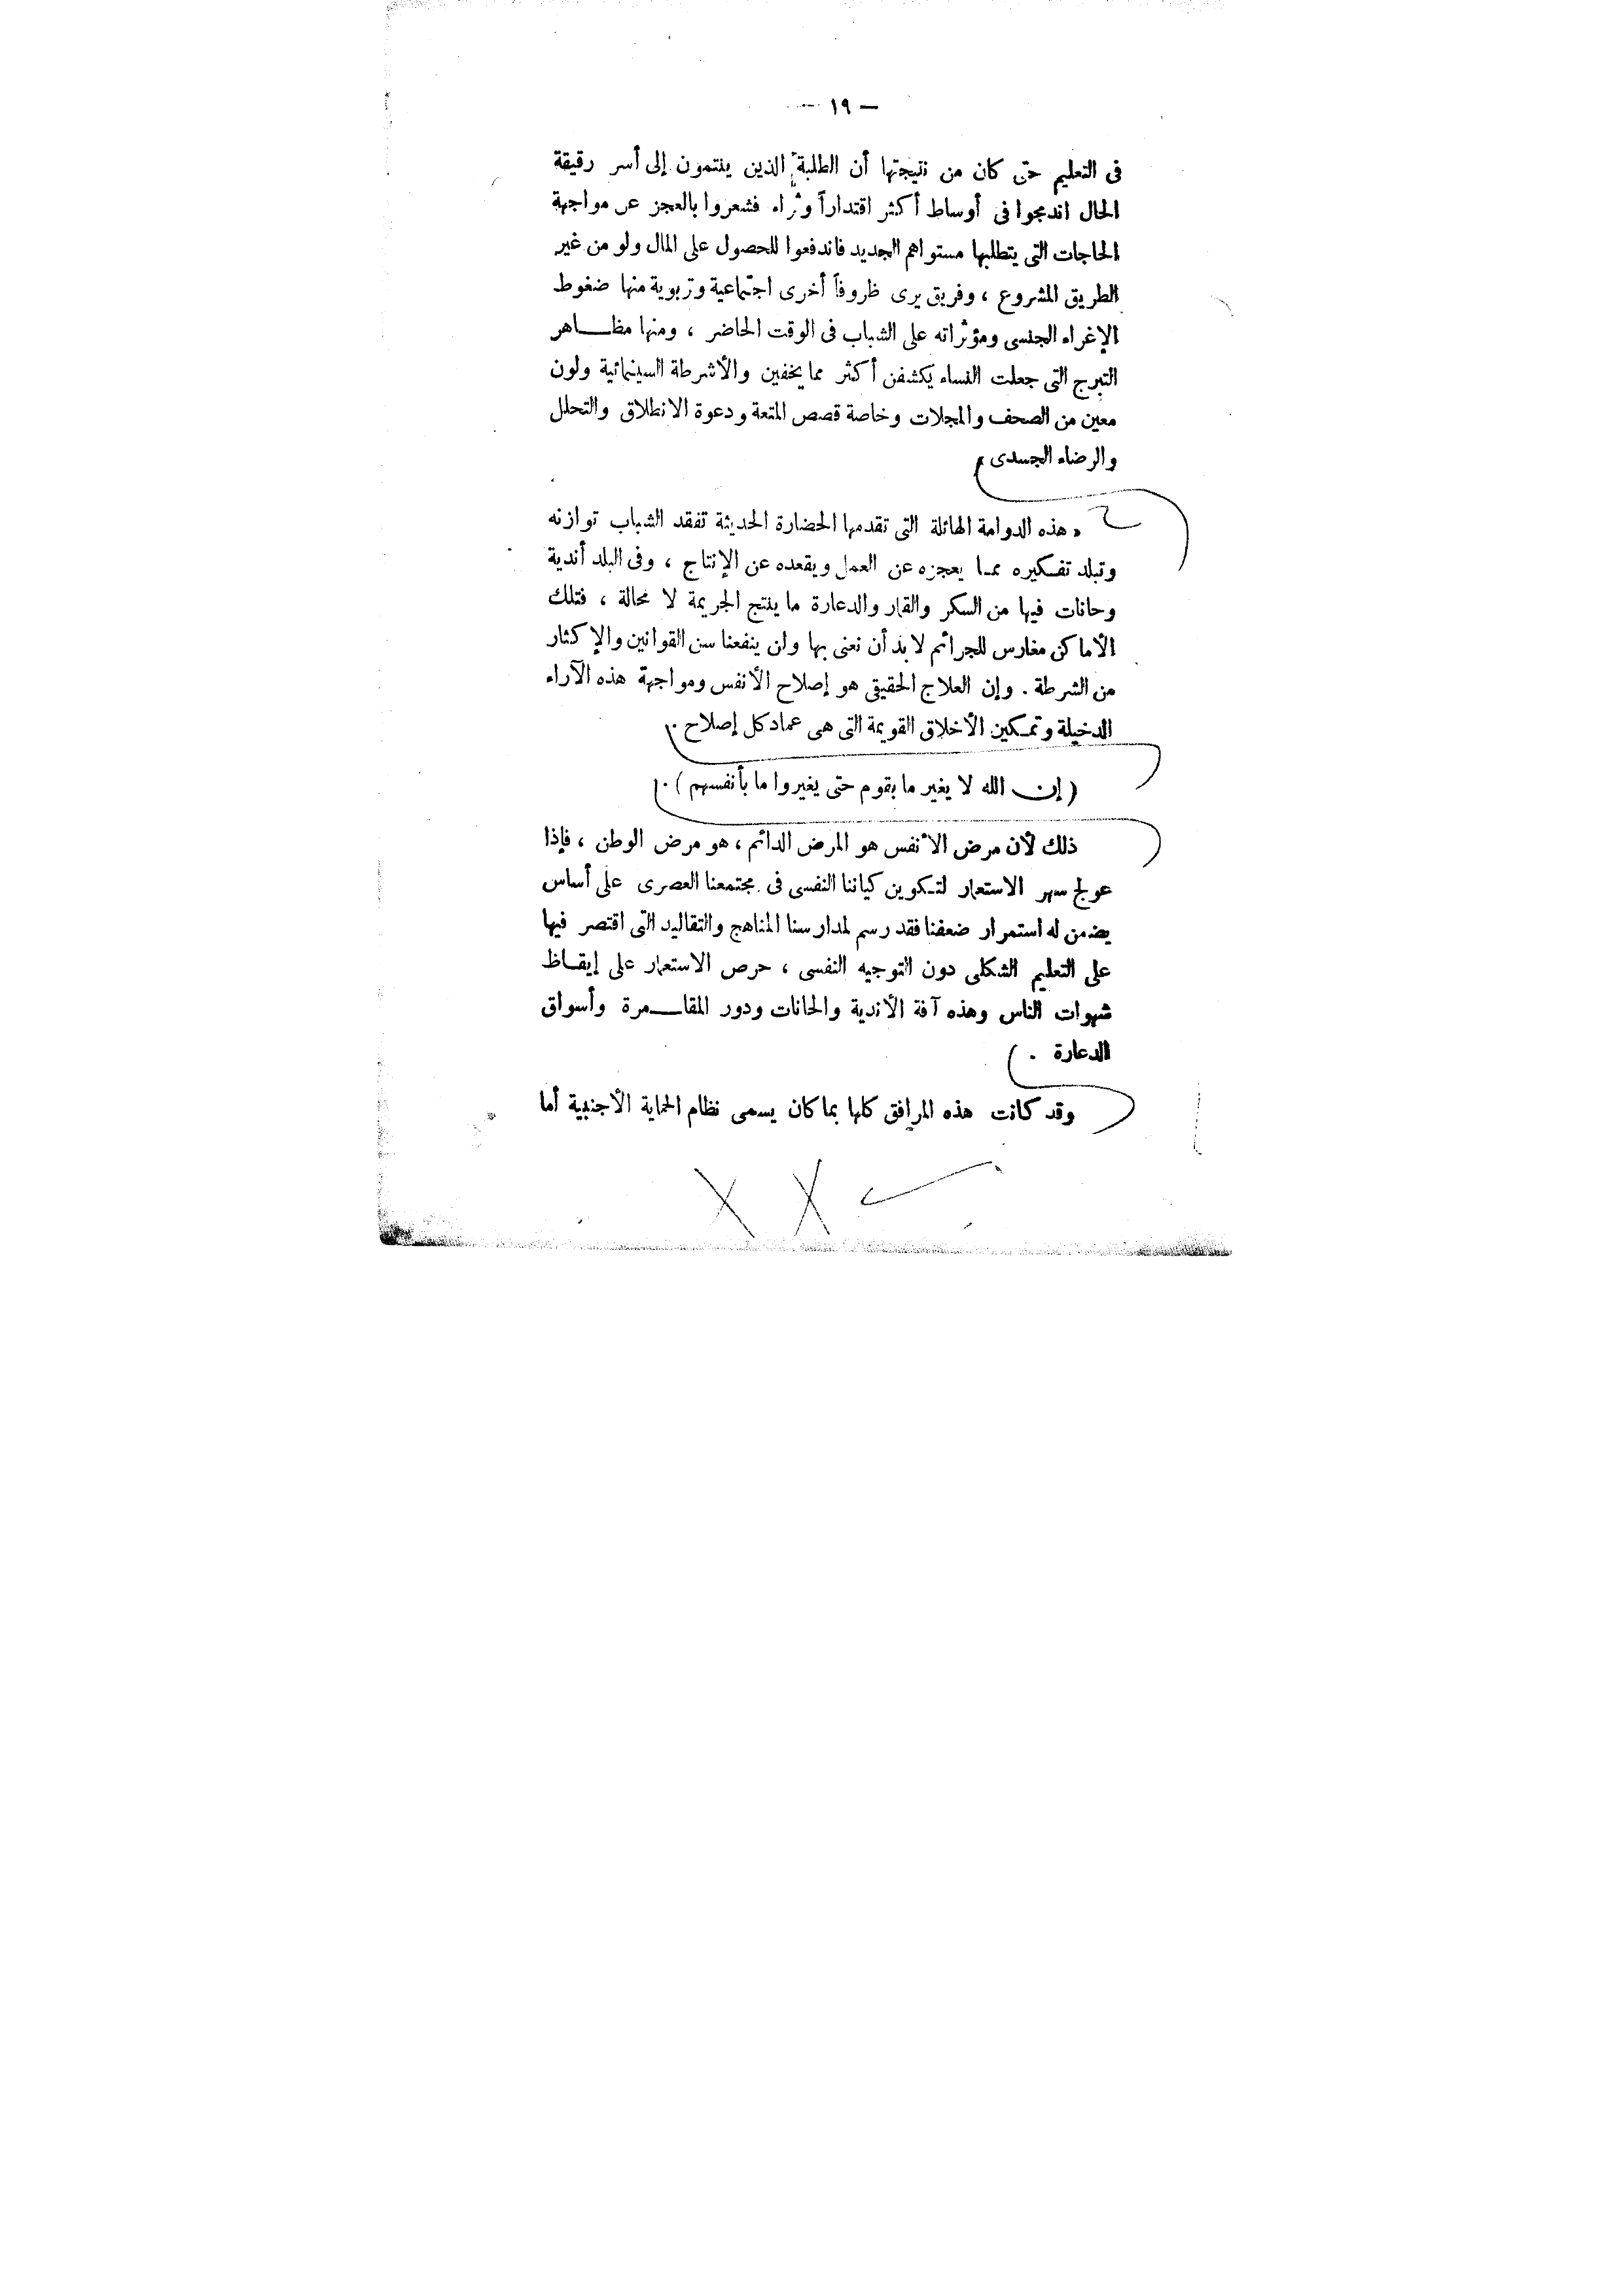 — ١٩ —
فى التعليم حتى كان من نتيجتها أن الطلبة الذين ينتمون إلى أسر رقيقة
الحال اندمجوا فى أوساط أكثر اقتداراً وثراء فشعروا بالعجز عن مواجهة
الحاجات التى يتطلبها مستواهم الجديد فاندفعوا للحصول على المال ولو من غير
الطريق المشروع ، وفريق يرى ظروفاً أخرى اجتماعية وتربوية منها ضغوط
الإغراء الجنسى ومؤثراته على الشباب فى الوقت الحاضر ، ومنها مظـــاهر
التبرج التى جعلت النساء يكشفن أكثر مما يخفين والأشرطة السينمائية ولون
معين من الصحف والمجلات وخاصة قصص المتعة ودعوة الانطلاق والتحلل
والرضاء الجسدى
« هذه الدوامة الهائلة التى تقدمها الحضارة الحديثة تفقد الشباب توازنه
وتبلد تفكيره مما يعجزه عن العمل ويقعده عن الإنتاج ، وفى البلد أندية
وحانات فيها من السكر والقمار والدعارة ما ينتج الجريمة لا محالة ، فتلك
الأماكن مغارس للجرائم لابد أن نعنى بها ولن ينفعنا سن القوانين والإكثار
من الشرطة . وإن العلاج الحقيقى هو إصلاح الأنفس ومواجهة هذه الآراء
الدخيلة وتمكين الأخلاق القويمة التى هى عماد كل إصلاح .
( إن الله لا يغير ما بقوم حتى يغيروا ما بأنفسهم ) .
ذلك لأن مرض الأنفس هو المرض الدائم ، هو مرض الوطن ، فإذا
عولج سهر الاستعمار لتكوين كياننا النفسى فى مجتمعنا العصرى على أساس
يضمن له استمرار ضعفنا فقد رسم لمدارسنا المناهج والتقاليد التى اقتصر فيها
على التعليم الشكلى دون التوجيه النفسى ، حرص الاستعمار على إيقـاظ
شهوات الناس وهذه آفة الأندية والحانات ودور المقـــامرة وأسواق
الدعارة .
وقد كانت هذه المرافق كلها بما كان يسمى نظام الحماية الأجنبية أما